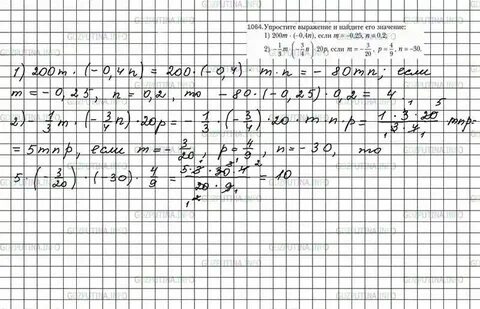 1084. Упростите выражение и найдите его значение:
1) 200m · (−0,4n), если m = −0,25, n = 0,2;
2) −1/3 m · (−3/4 n) · 20p, если m = −3/20, p = 4/9, n = −30.
1) 200m · (−0,4n) = 200 · (−0,4) · m · n = −80mn, если
m = −0,25, n = 0,2, то −80 · (−0,25) · 0,2 = 4
2) −1/3 m · (−3/4 n) · 20p = −1/3 · (−3/4) · 20 · m · n · p = 1 · 3 · 20 / 3 · 4 mnp =
= 5mnp, если m = −3/20, p = 4/9, n = −30, то
5 · (−3/20) · (−30) · 4/9 = 5 · 3 · 30 · 4 / 20 · 9 = 10
GUZPUTINA.INFO